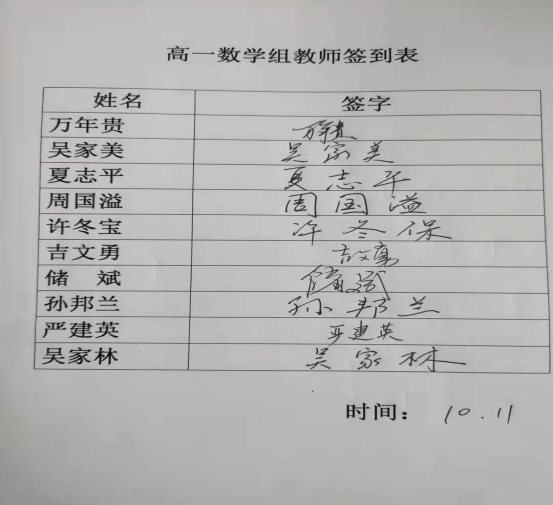 高一数学组教师签到表
姓名 签字
万年贵 万年贵
吴家美 吴家美
夏志平 夏志平
周国溢 周国溢
许冬宝 许冬保
吉文勇 吉文勇
储 斌 储斌
孙邦兰 孙邦兰
严建英 严建英
吴家林 吴家林
时间: 10.11